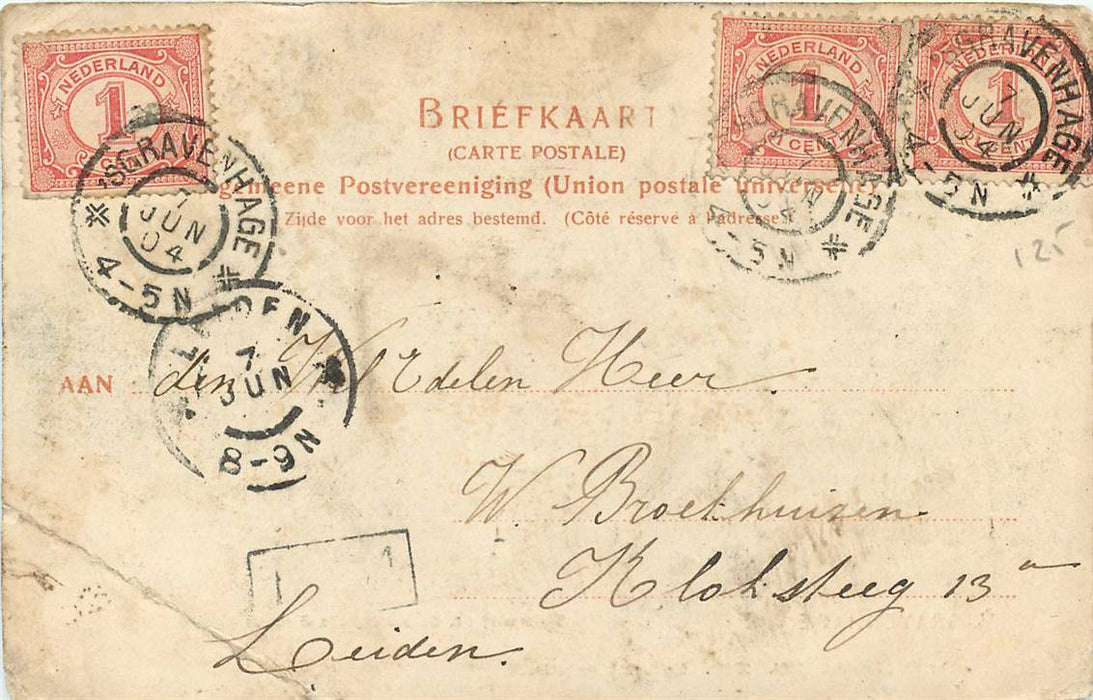 NEDERLAND
1
CENT
NEDERLAND
1
1 CENT
NEDERLAND
1
CENT
'SGRAVENHAGE
7
JUN
04
4-5N
'SGRAVENHAGE
JUN
04
4-5N
'SGRAVENHAGE
7
JUN
04
4-5N
BRIEFKAART
(CARTE POSTALE)
Algemeene Postvereeniging (Union postale universelle)
Zijde voor het adres bestemd. (Côté réservé à l'adresse)
125
LEIDEN
7
JUN
8-9N
AAN den Wel Edelen Heer
W. Broekhuizen
Kloksteeg 13a
1
Leiden.